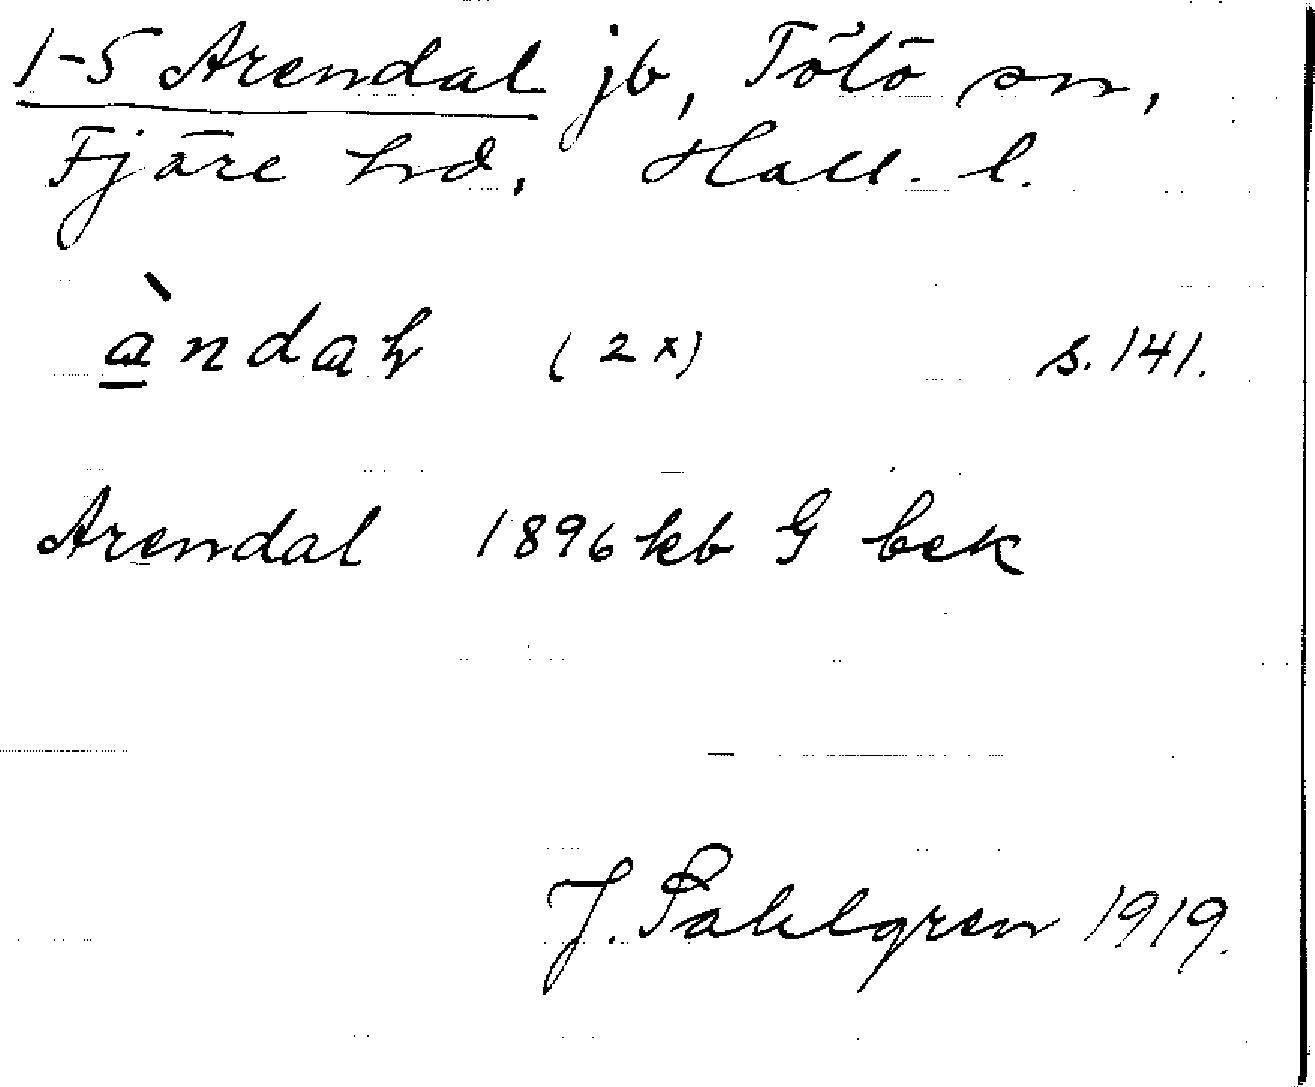 1-5 Arendal jb, Tölö sn,
Fjäre hd. Hall. l.
àndaɫ (2x) s.141.
Arendal 1896 kb G bek
J. Sahlgren 1919.